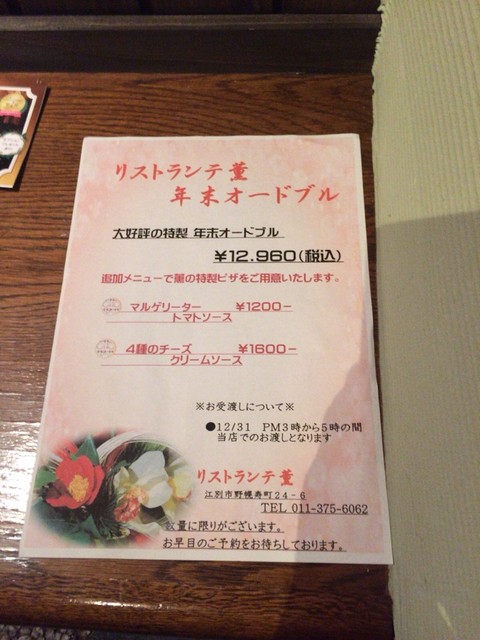 リストランテ薫
年末オードブル
大好評の特製 年末オードブル
¥12.960(税込)
追加メニューで薫の特製ピザをご用意いたします。
マルゲリーター ¥1200−
トマトソース
4種のチーズ ¥1600−
クリームソース
※お受渡しについて※
●12/31 PM3時から5時の間
当店でのお渡しとなります
リストランテ薫
江別市野幌寿町24-6
TEL 011-375-6062
数量に限りがございます。
お早目のご予約をお待ちしております。